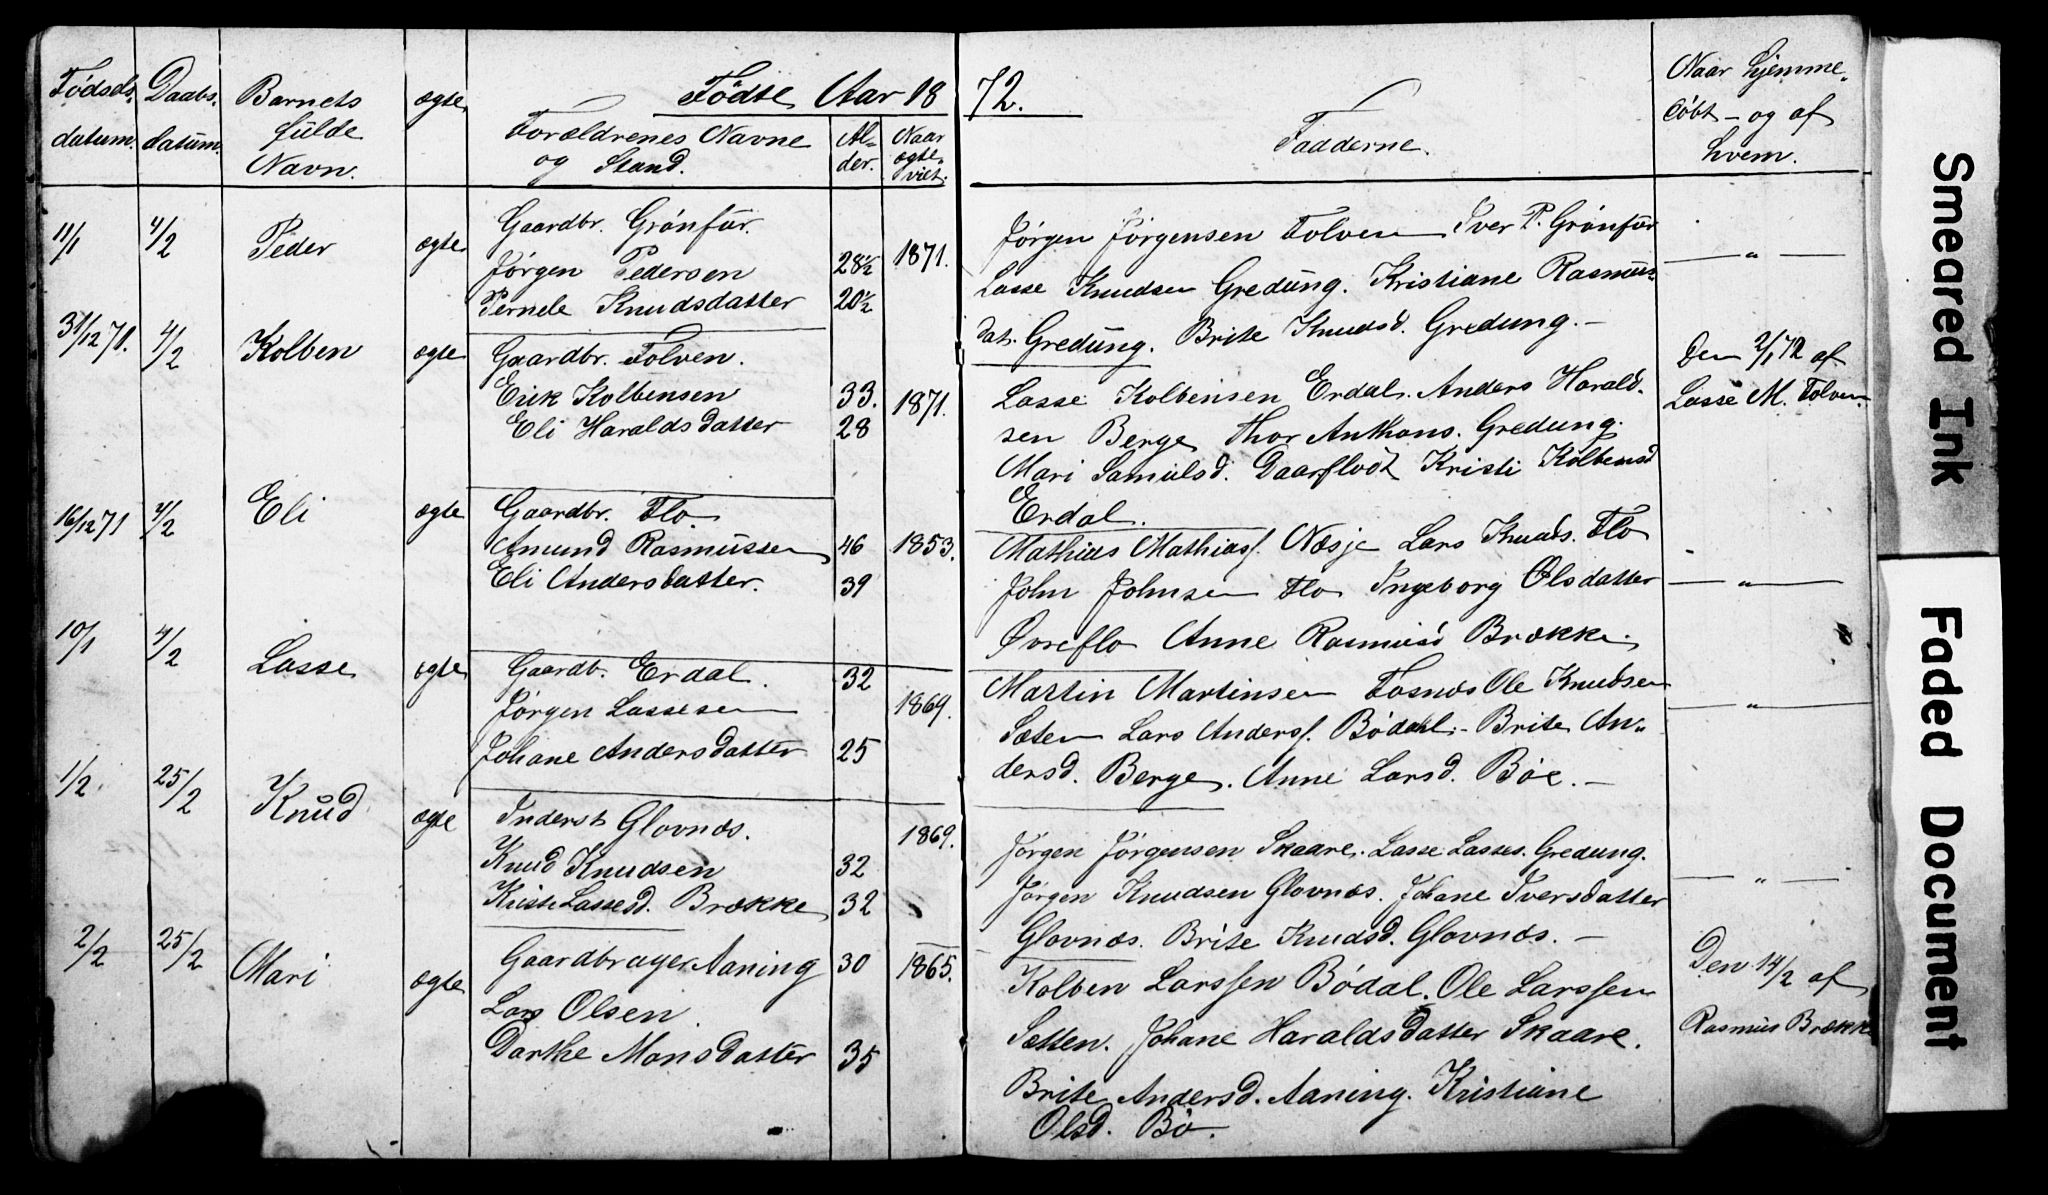 Fødte Aar 18 72.
Fødsels- datum.
Daabs- datum.
Barnets fulde Navn.
ægte
Forældrenes Navne og Stand.
Al- der.
Naar ægte- viet.
Fadderne.
Naar hjemme- døbt - og af hvem.
11/1 4/2 Peder ægte Gaardbr. Grønfur.
Jørgen Pedersen 28½ 1871.
Pernele Knudsdatter 20½
Jørgen Jørgensen Tolven Iver P. Grønfur
Lasse Knudsen Gredung. Kristiane Rasmus-
dat. Gredung. Brite Knudsd. Gredung. -
- „ -
31/12 71. 4/2 Kolben ægte Gaardbr. Tolven.
Erik Kolbensen 33. 1871.
Eli Haraldsdatter 28
Lasse Kolbensen Erdal. Anders Harald-
sen Berge Thor Anthons. Gredung.
Mari Samulsd. Daarflodt Kristi Kolbensd
Erdal.
Den 2/1 72 af
Lasse M. Tolven
16/12 71 4/2 Eli ægte Gaardbr. Flo.
Amund Rasmussen 46 1853.
Eli Andersdatter. 39
Mathias Mathiass. Næsje Lars Knuds. Flo
John Johnsen Flo Ingeborg Olsdatter
Øvreflo Anne Rasmusd Brække.
- „ -
10/1 4/2 Lasse ægte Gaardb. Erdal. 32
Jørgen Lassesen 1869.
Johane Andersdatter 25
Martin Martinsen Fosnæs Ole Knudsen
Sæten Lars Anderss. Bødahl. - Brite An-
dersd. Berge. Anne Larsd. Bøe. -
- „ -
1/2 25/2 Knud ægte Inderst Glovnæs. 1869.
Knud Knudsen 32
Kristi Lassesd. Brække 32
Jørgen Jørgensen Skaare. Lasse Lasses. Gredung.
Jørgen Knudsen Glovnæs. Johane Iversdatter
Glovnæs. Brite Knudsd. Glovnæs. -
- „ -
2/2 25/2 Mari ægte Gaardbruger Aaning 30 1865.
Lars Olsen
Darthe Monsdatter 35
Kolben Larssen Bødal. Ole Larssen
Sætten. Johane Haraldsdatter Skaare.
Brite Andersd. Aaning. Kristiane
Olsd. Bø.
Den 14/2 af
Rasmus Brække
Smeared Ink
Faded Document